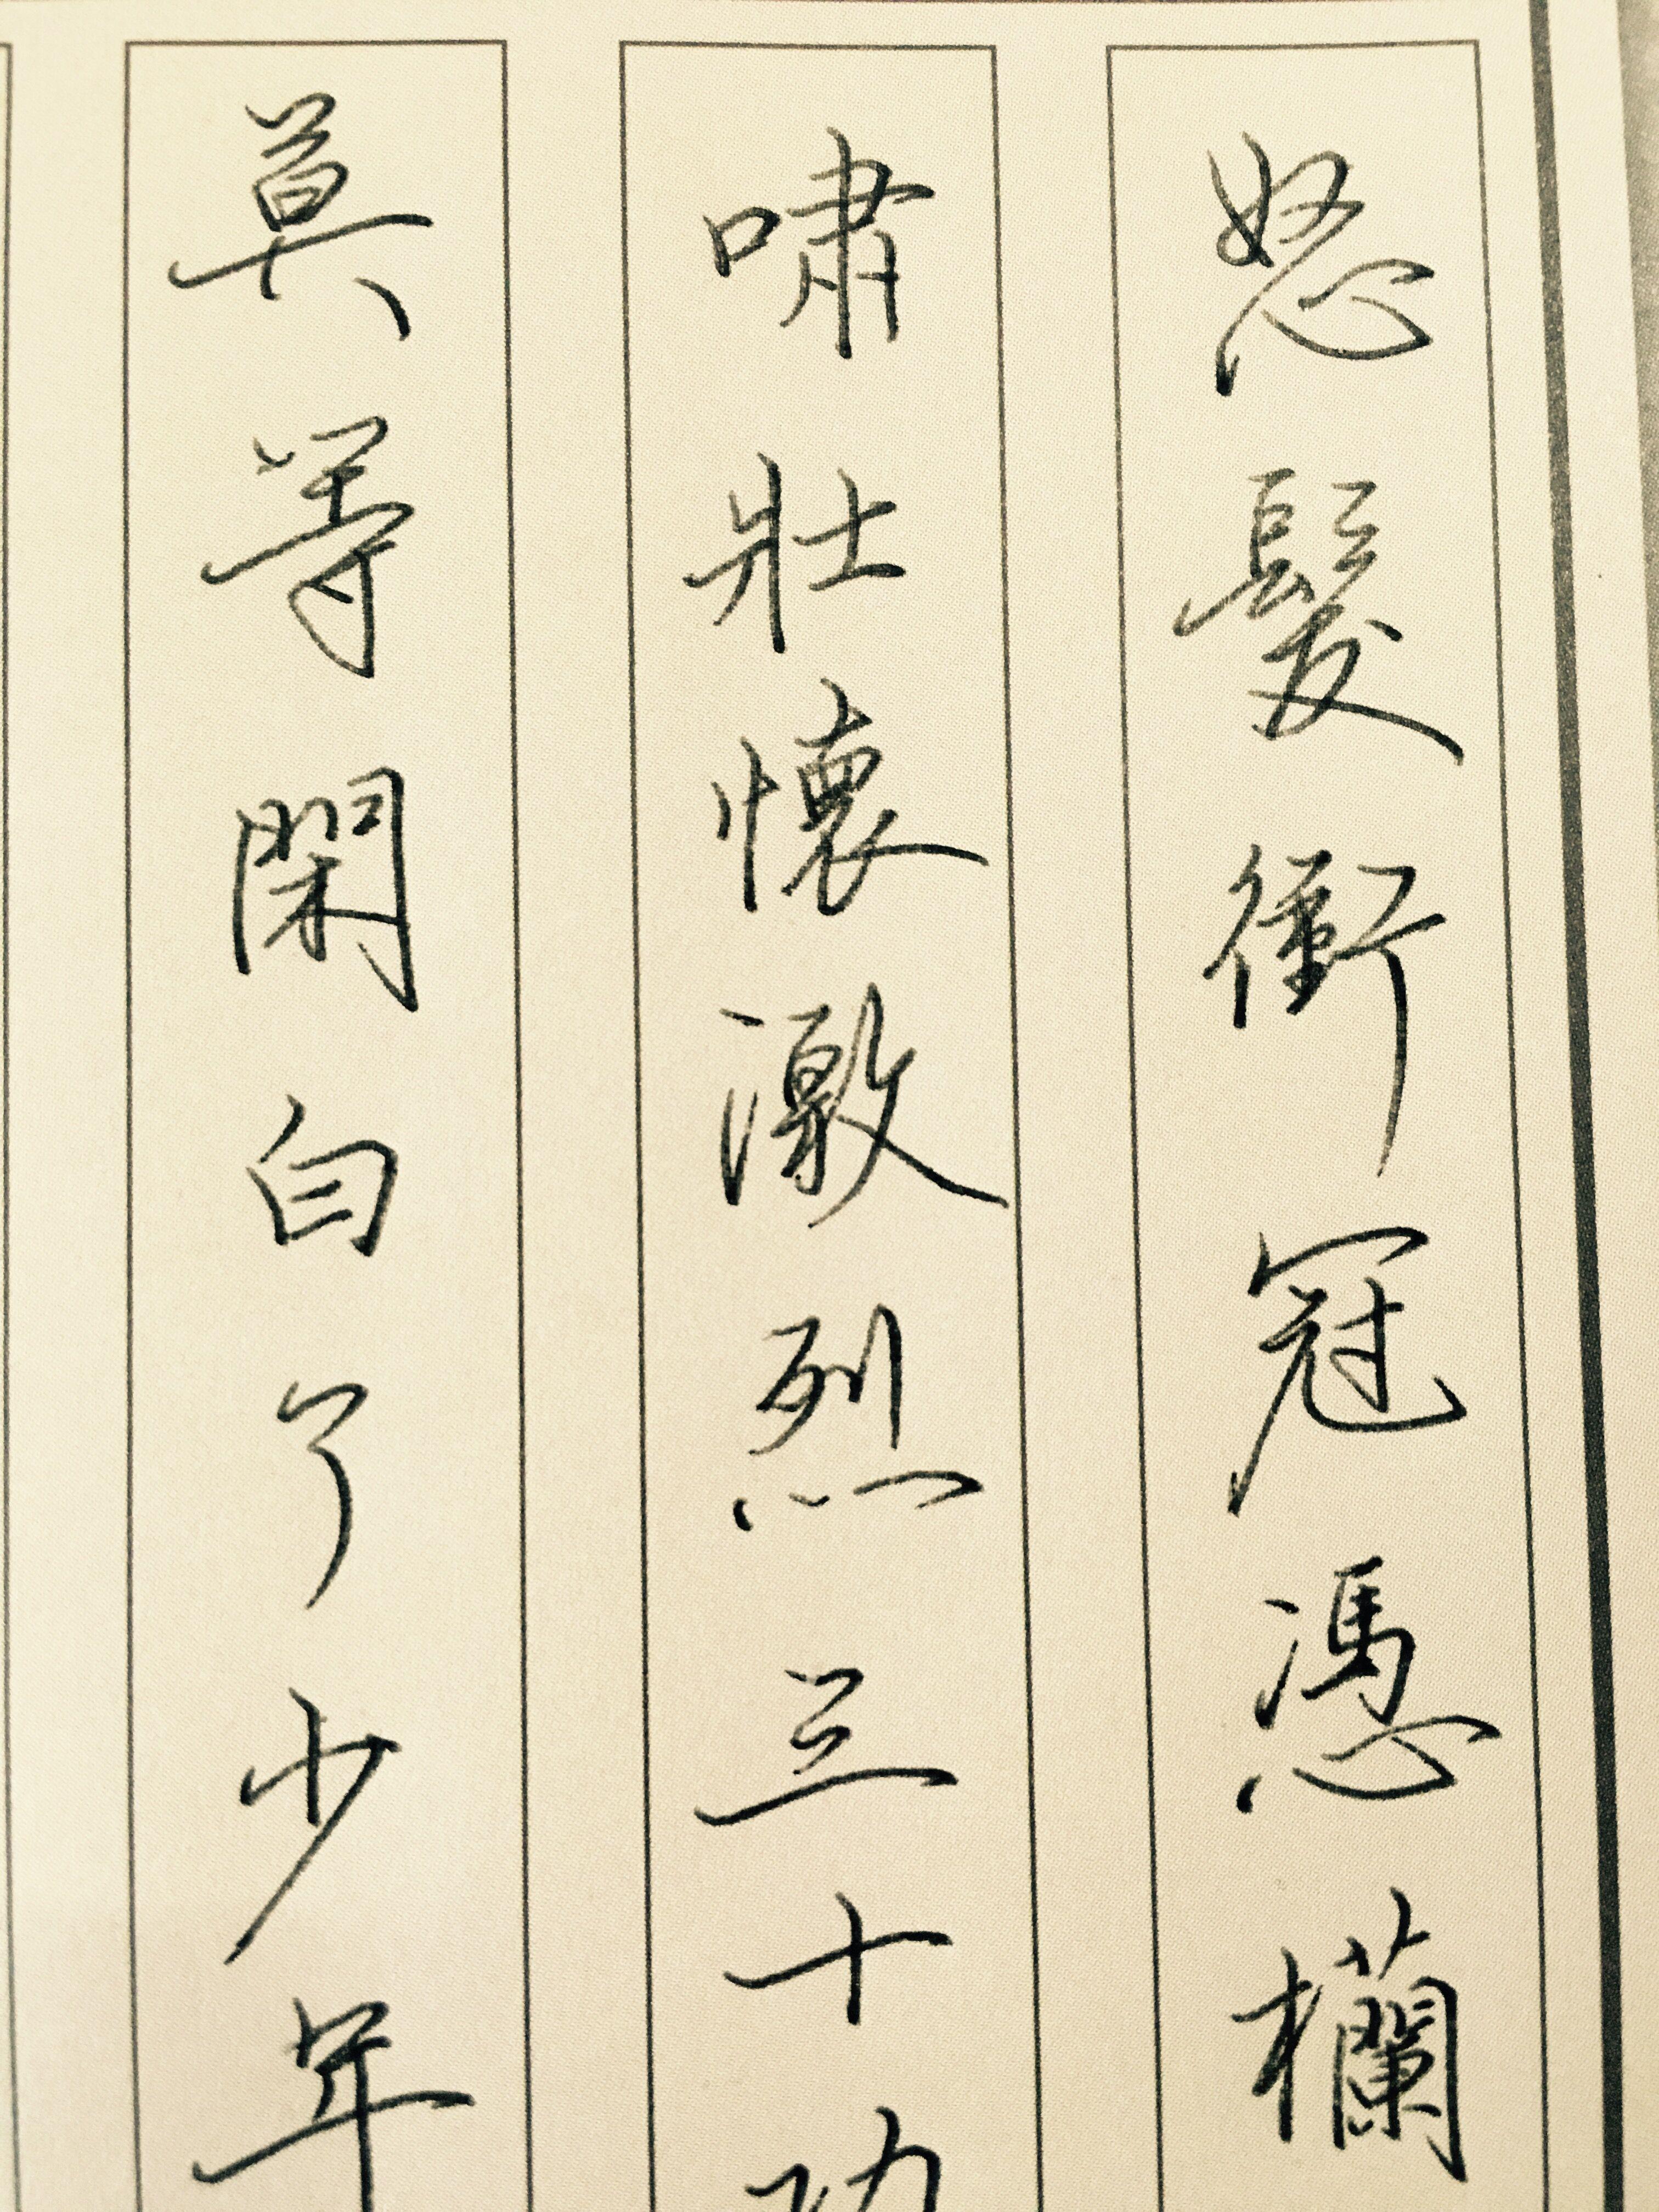 怒髮衝冠憑欄
嘯壯懷激烈三十功
莫等閑白了少年